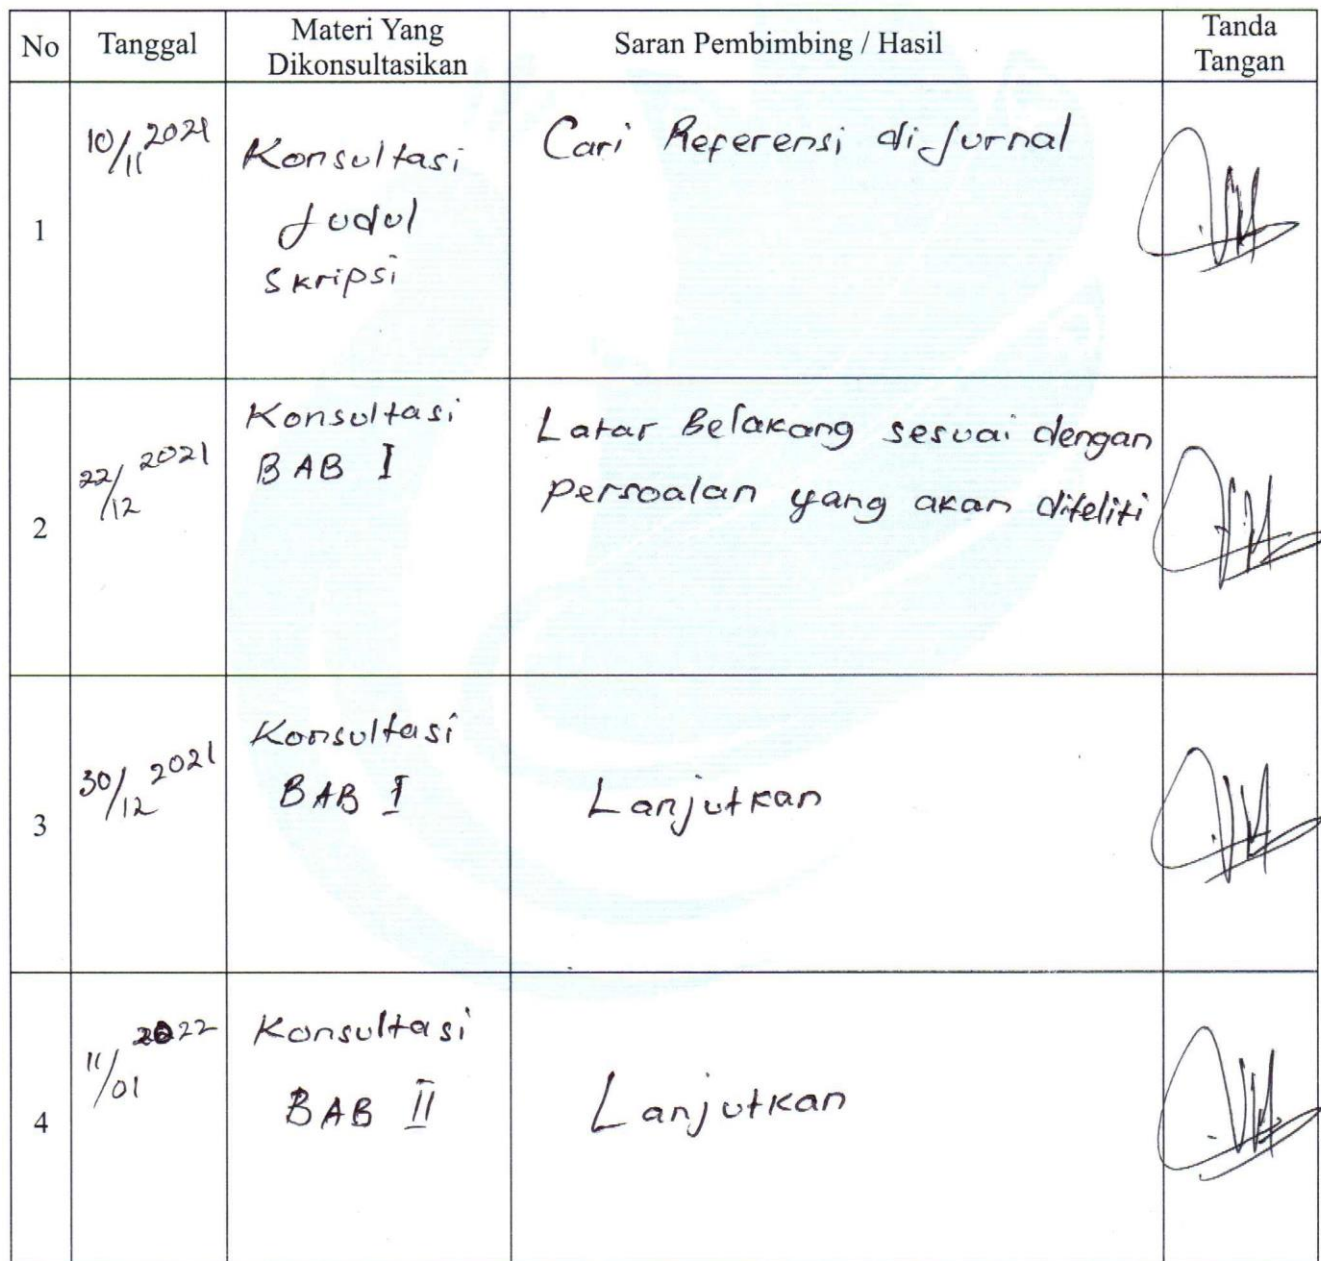 No Tanggal Materi Yang Dikonsultasikan Saran Pembimbing / Hasil Tanda Tangan
1
10/11 2021
Konsultasi
Judul
Skripsi
Cari Referensi di Jurnal
2
22/12 2021
Konsultasi
BAB I
Latar Belakang sesuai dengan
persoalan yang akan diteliti
3
30/12 2021
Konsultasi
BAB I
Lanjutkan
4
11/01 2022
Konsultasi
BAB II
Lanjutkan